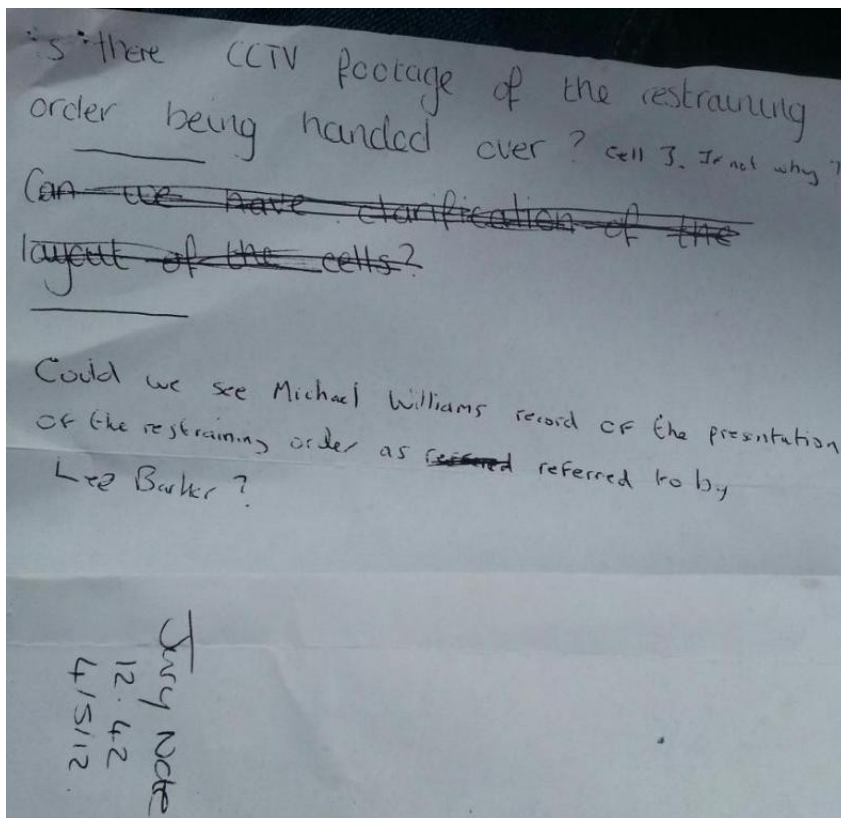 is there CCTV footage of the restraining
order being handed over? Cell 3. If not why?
Can we have clarification of the
layout of the cells?
Could we see Michael Williams record of the presentation
of the restraining order as referred to by
Lee Barker?
Jury Note
12.42
4/5/12